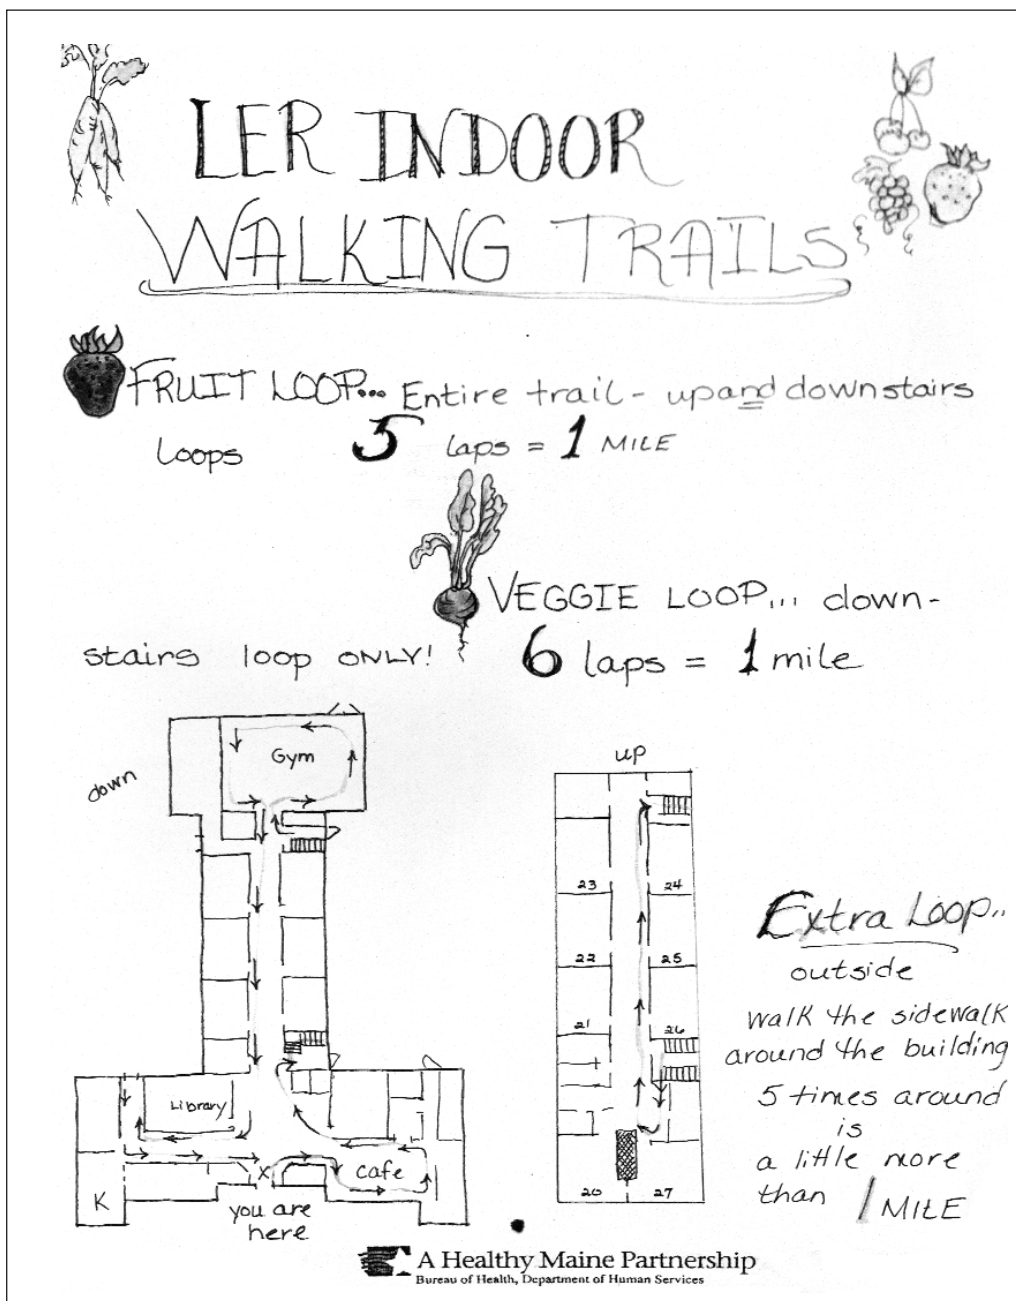 LER INDOOR
WALKING TRAILS
FRUIT LOOP... Entire trail - up and downstairs
loops 5 laps = 1 MILE
VEGGIE LOOP... down-
stairs loop ONLY! 6 laps = 1 mile
down
Gym
Library
Cafe
K
X
you are
here
up
23 24
22 25
21 26
20 27
Extra Loop..
outside
walk the sidewalk
around the building
5 times around
is
a little more
than 1 MILE
A Healthy Maine Partnership
Bureau of Health, Department of Human Services